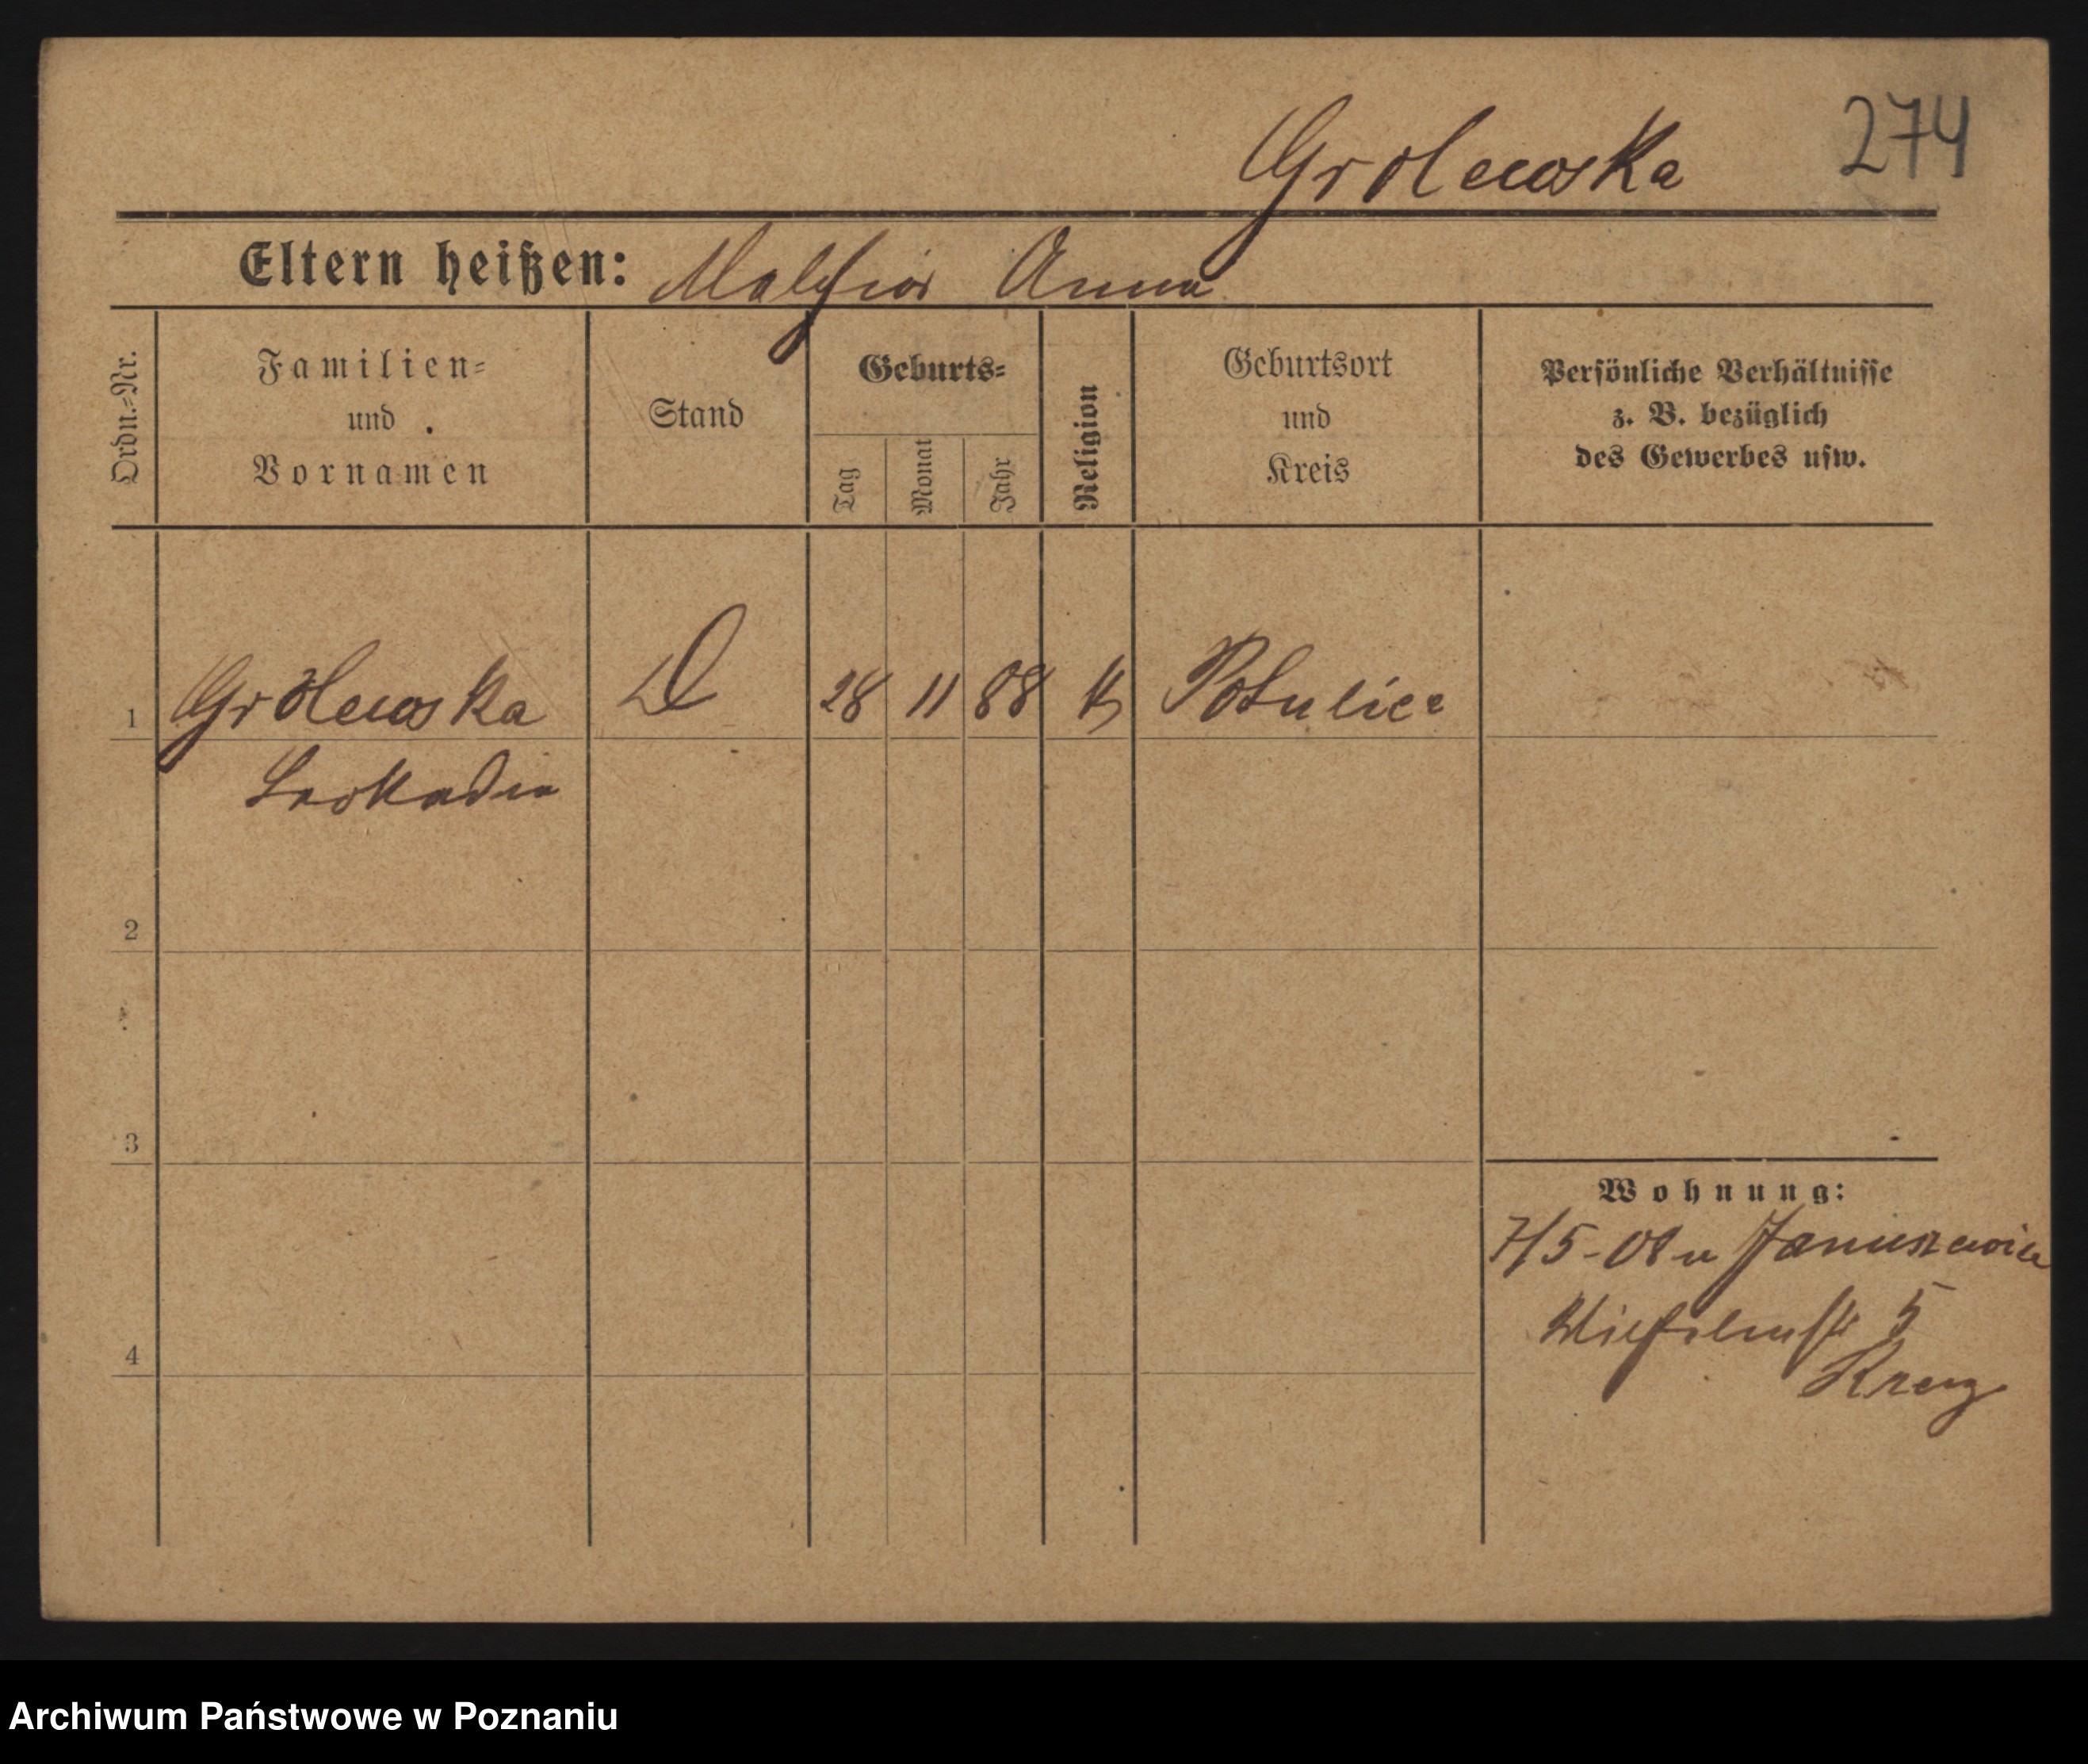 Grolewska 274
Eltern heißen: Malchior Anna
Ordn.=Nr.
Familien=
und
Vornamen
Stand
Geburts=
Tag
Monat
Jahr
Religion
Geburtsort
und
Kreis
Persönliche Verhältnisse
z. B. bezüglich
des Gewerbes usw.
1 Grolewska D 28 11 88 K Potulice
Leokadia
2
3
4
Wohnung:
7/5-08 Januszewicz
Wilhelmstr 5
Kreuz
Archiwum Państwowe w Poznaniu